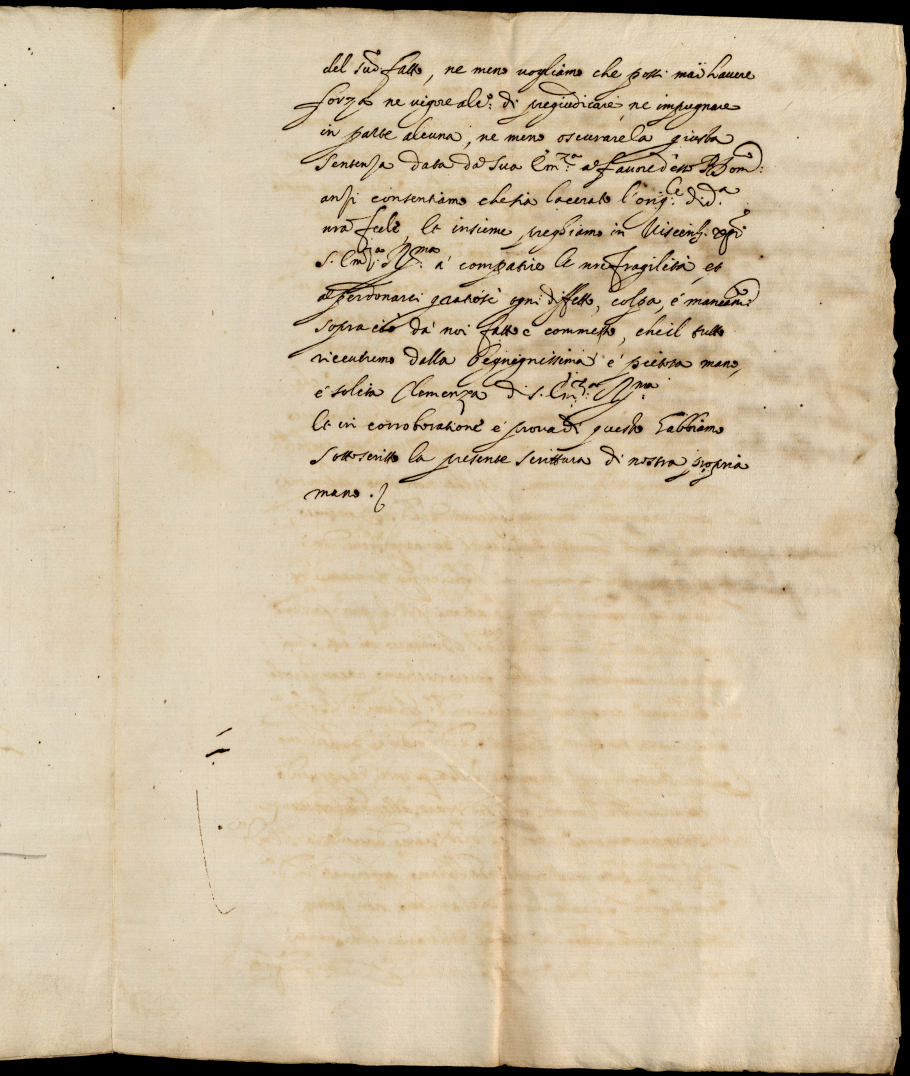 del sud.o fatto, ne meno vogliamo che possi mai havere
forza ne vigore alc.o di pregiudicare, ne impugnare
in parte alcuna, ne meno oscurare la giusta
sentenza data da Sua Em.za a favore d'esso
anzi consentiamo che sia lacerato l'orig.le di d.a
n̄ra fede, et insieme preghiamo in
S. Em.za R.ma à compatire le nr̄e fragilità, et
à perdonarci ogni diffetto, colpa, é mancam.to
sopra ciò da noi fatto e commesso, che il tutto
riceveremo dalla begnignissima é pietosa mano,
é solita Clemenza di S. Em.za R.ma
Et in corroboratione é prova di questo habbiamo
sottoscritto la presente scrittura di nostra propria
mano.